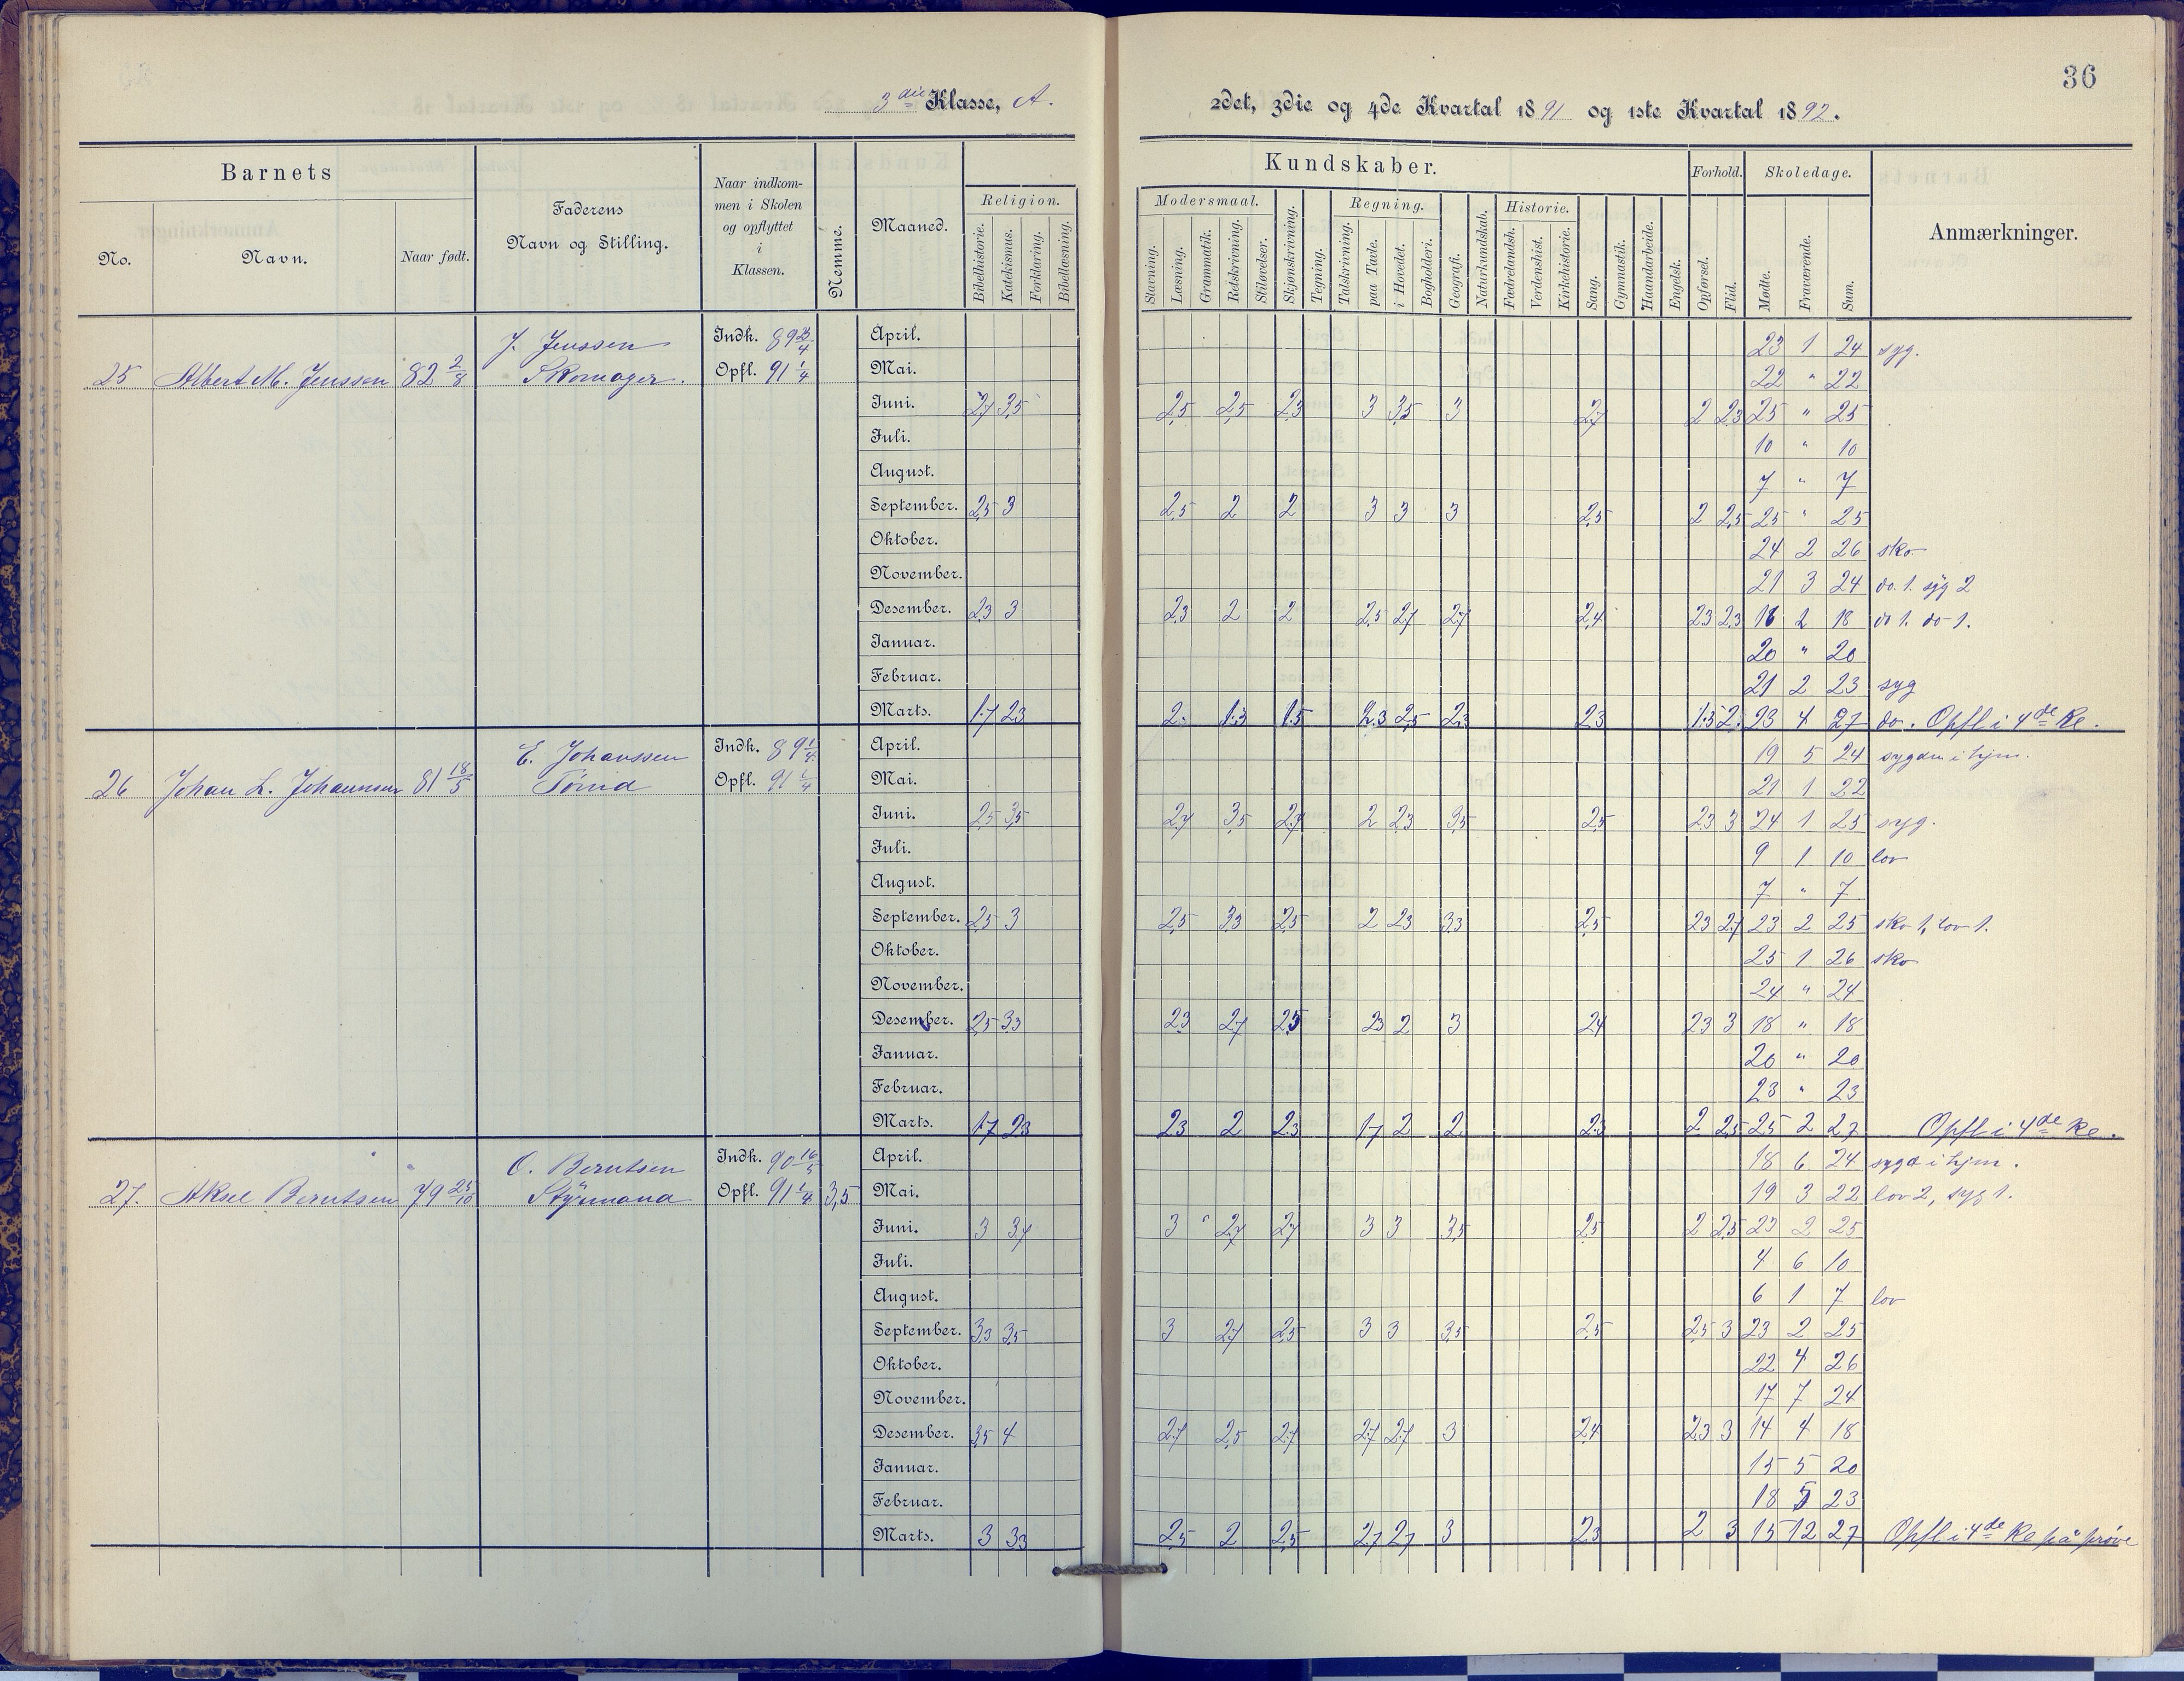 36
3die Klasse, A.
2det, 3die og 4de Kvartal 1891 og 1ste Kvartal 1892.
Barnets
No.
Navn.
Naar født.
Faderens
Navn og Stilling.
Naar indkom-
men i Skolen
og opflyttet
i
Klassen.
Nemme.
Maaned.
Kundskaber.
Religion.
Bibelhistorie. Katekismus. Forklaring. Bibellæsning.
Modersmaal.
Stavning. Læsning. Grammatik. Retskrivning. Stiløvelser.
Skjønskrivning.
Tegning.
Regning.
Talskrivning. paa Tavle. i Hovedet. Bogholderi.
Geografi.
Naturkundskab.
Historie.
Fædrelandsh. Verdenshist. Kirkehistorie.
Sang. Gymnastik. Haandarbeide. Engelsk.
Forhold.
Opførsel. Flid.
Skoledage.
Mødte. Fraværende. Sum.
Anmærkninger.
25 Albert M. Jenssen 82 2/8
J. Jenssen
Skomager.
Indk. 89
Opfl. 91 1/4
April. 23 1 24 syg.
Mai. 22 " 22
Juni. 2,7 3,5 2,5 2,5 2,3 3 3,5 3 2,7 2 2,3 25 " 25
Juli. 10 " 10
August. 7 " 7
September. 2,5 3 2,5 2 2 3 3 3 2,5 2 2,5 25 " 25
Oktober. 24 2 26 sko
November. 21 3 24 do. 1. syg 2
Desember. 2,3 3 2,3 2 2 2,5 2,7 2,7 2,4 2,3 2,3 16 2 18 do 1. do 1.
Januar. 20 " 20
Februar. 21 2 23 syg
Marts. 1.7 2.3 2. 1.3 1.5 2.3 2.5 2.3 2.3 1.3 2. 23 4 27 do. Opfl i 4de Kl.
26 Johan L. Johannsen 81 18/5
E. Johanssen
Indk. 89 1/4
Opfl. 91 1/4
April. 19 5 24 sygdm i hjm.
Mai. 21 1 22
Juni. 2,5 3,5 2,7 3,5 2,7 2 2,3 3,5 2,5 2,3 3 24 1 25 syg.
Juli. 9 1 10 lov
August. 7 " 7
September. 2,5 3 2,5 3,3 2,5 2 2,3 3,3 2,5 2,3 2,7 23 2 25 sko 1, lov 1.
Oktober. 25 1 26 sko
November. 24 " 24
Desember. 2,5 3,3 2,3 2,7 2,5 2,3 2 3 2,4 2,3 3 18 " 18
Januar. 20 " 20
Februar. 23 " 23
Marts. 1.7 2.3 2.3 2 2.3 1.7 2 2. 2.3 2 2.5 25 2 27 Opfl i 4de Kl.
27. Aksel Berntsen 79 25/10
O. Berntsen
Styrmand
Indk. 90 16/5
Opfl. 91 1/4 3,5
April. 18 6 24 sygd i hjm.
Mai. 19 3 22 lov 2, syg 1.
Juni. 3 3,7 3 2,7 2,7 3 3 3,5 2,5 2 2,5 23 2 25
Juli. 4 6 10
August. 6 1 7 lov
September. 3,3 3,5 3 2,7 2,5 3 3 3,5 2,5 2,5 3 23 2 25
Oktober. 22 4 26
November. 17 7 24
Desember. 3,5 4 2,7 2,5 2,7 2,7 2,7 3 2,4 2,3 3 14 4 18
Januar. 15 5 20
Februar. 18 5 23
Marts. 3 3,3 2,5 2 2,5 2,7 2,7 3 2,3 2 3 15 12 27 Opfl i 4de Kl på prøve